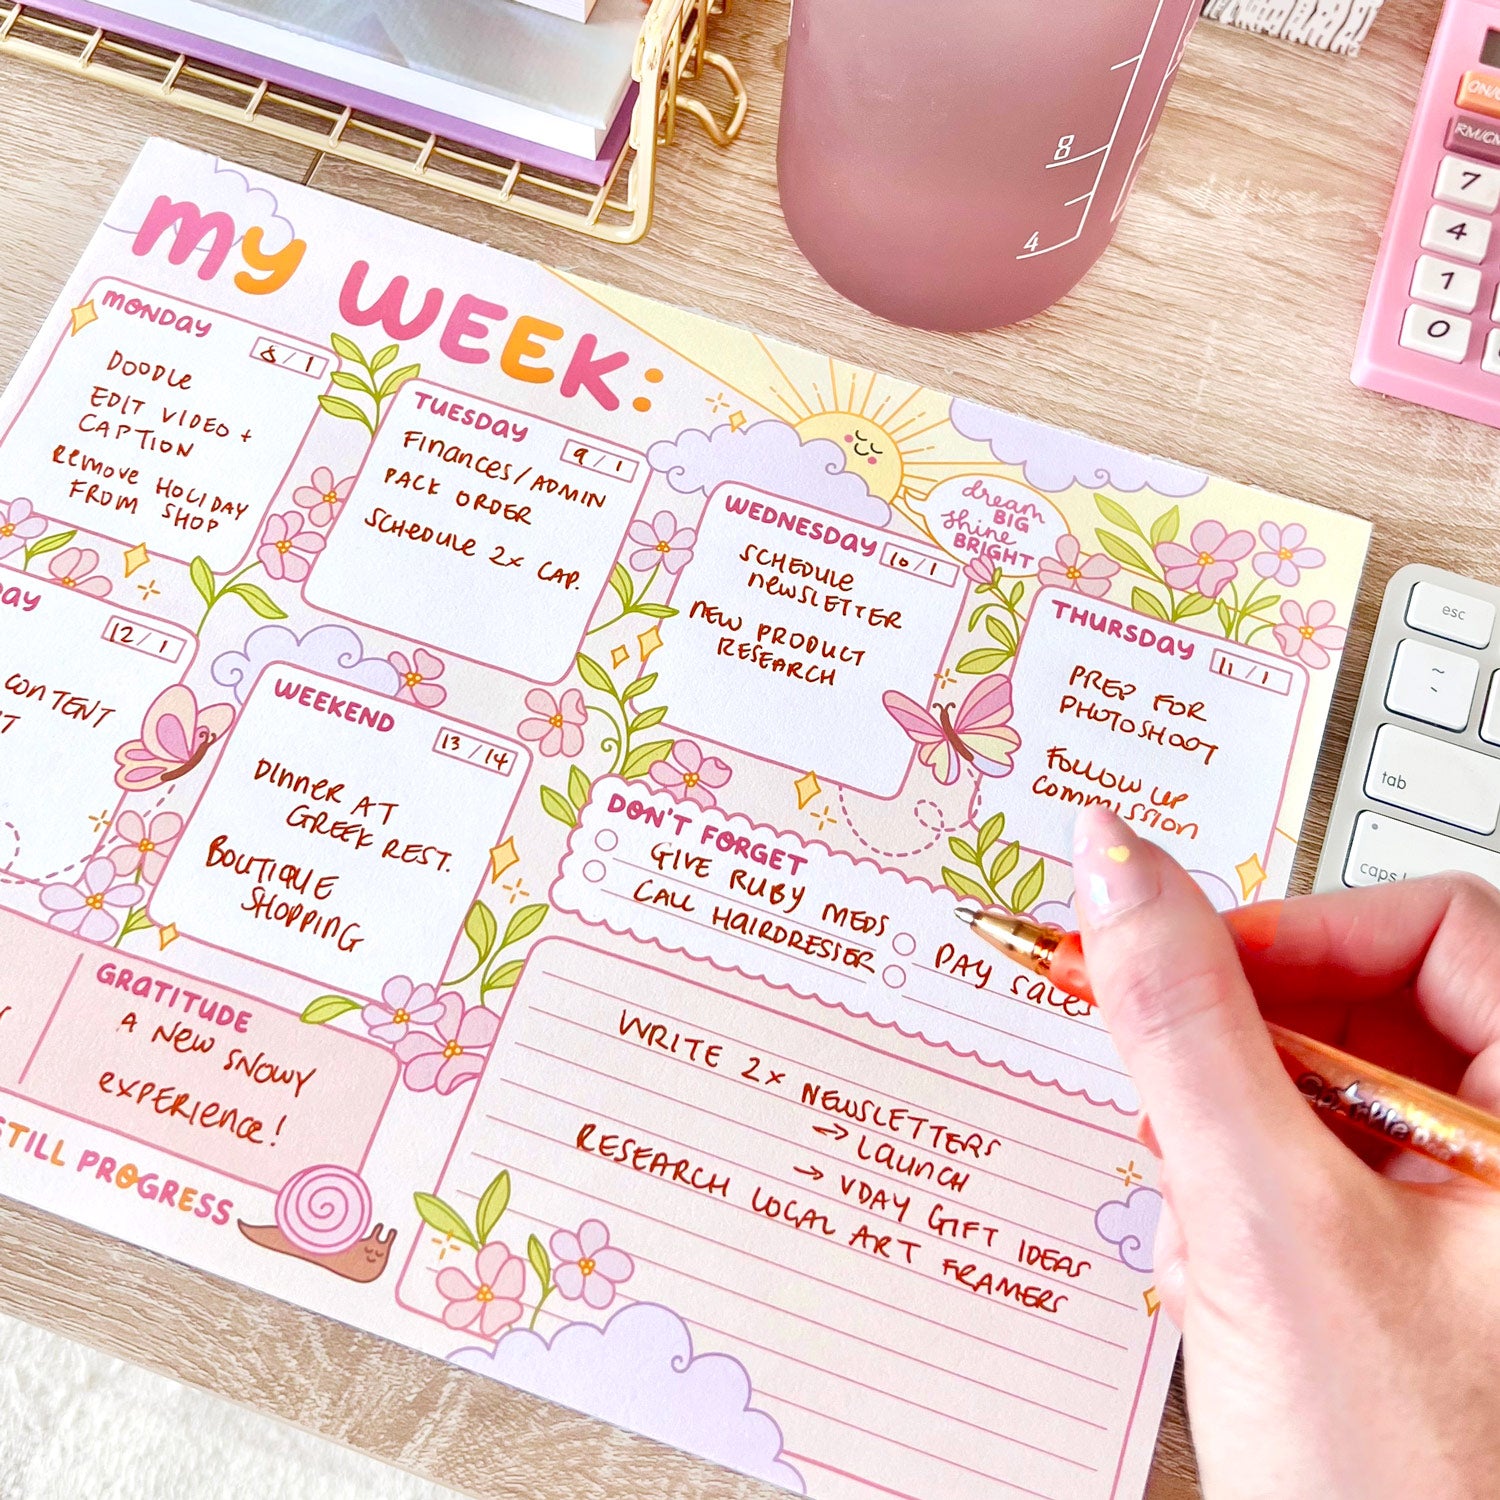 my WEEK:
MONDAY
8/1
DOODLE
EDIT VIDEO +
CAPTION
REMOVE HOLIDAY
FROM SHOP
TUESDAY
9/1
FINANCES/ADMIN
PACK ORDER
SCHEDULE 2x CAP.
WEDNESDAY
10/1
SCHEDULE
NEWSLETTER
NEW PRODUCT
RESEARCH
dream
BIG
shine
BRIGHT
THURSDAY
11/1
PREP FOR
PHOTOSHOOT
FOLLOW UP
COMMISSION
12/1
CONTENT
WEEKEND
13/14
DINNER AT
GREEK REST.
BOUTIQUE
SHOPPING
DON'T FORGET
GIVE RUBY MEDS
CALL HAIRDRESSER
PAY SALES
GRATITUDE
A NEW SNOWY
EXPERIENCE!
STILL PROGRESS
WRITE 2x NEWSLETTERS
→ LAUNCH
→ VDAY GIFT IDEAS
RESEARCH LOCAL ART FRAMERS
8
4
RM/CM
7
4
1
0
esc
~
tab
caps